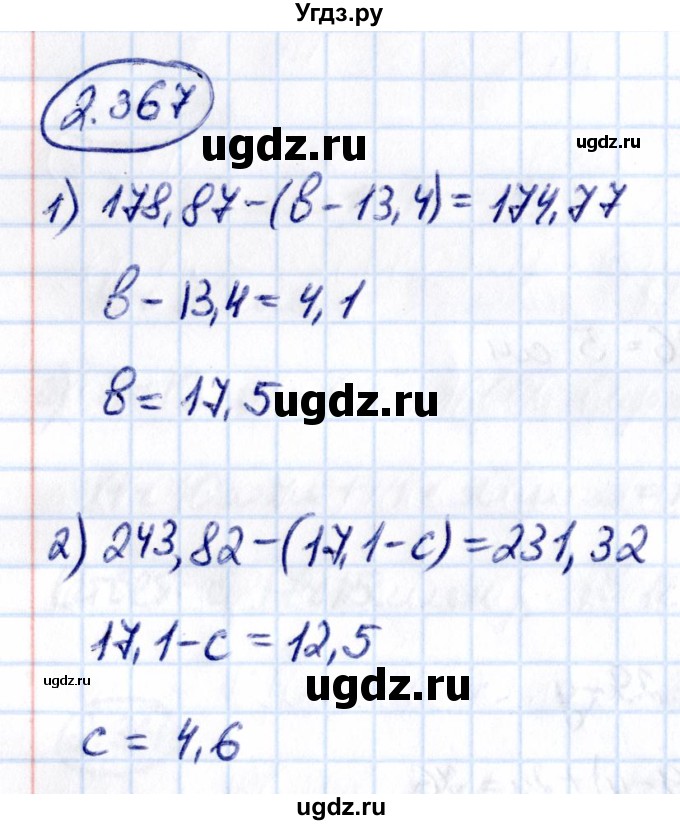 Угдз.ру
2.367
ugdz.ru
1) 178,87-(в-13,4)=174,77
в-13,4=4,1
в=17,5
ugdz.ru
2) 243,82-(17,1-с)=231,32
17,1-с=12,5
ugdz.ru
ugdz.ru
с=4,6
ugdz.ru